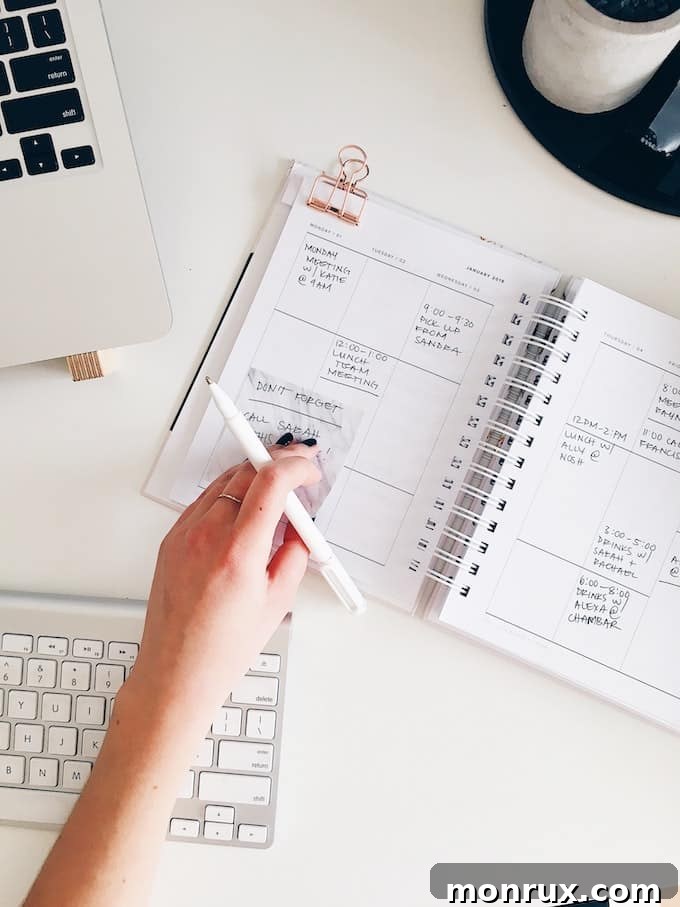 JANUARY 2018
MONDAY / 01
TUESDAY / 02
WEDNESDAY / 03
THURSDAY / 04
MONDAY
MEETING
W/ KATIE
@ 9AM
9:00-9:30
PICK UP
FROM
SANDRA
12:00-1:00
LUNCH
TEAM
MEETING
DON'T FORGET
CALL SARAH
12PM-2PM
LUNCH W/
ALLY @
NOSH
11:00 CALL
3:00-5:00
DRINKS W/
SARAH +
RACHAEL
6:00-8:00
DRINKS W/
ALEXA @
CHAMBAR
enter
return
shift
6
7
8
9
Y
U
I
H
J
K
B
N
M
delete
enter
return
shift
monrux.com